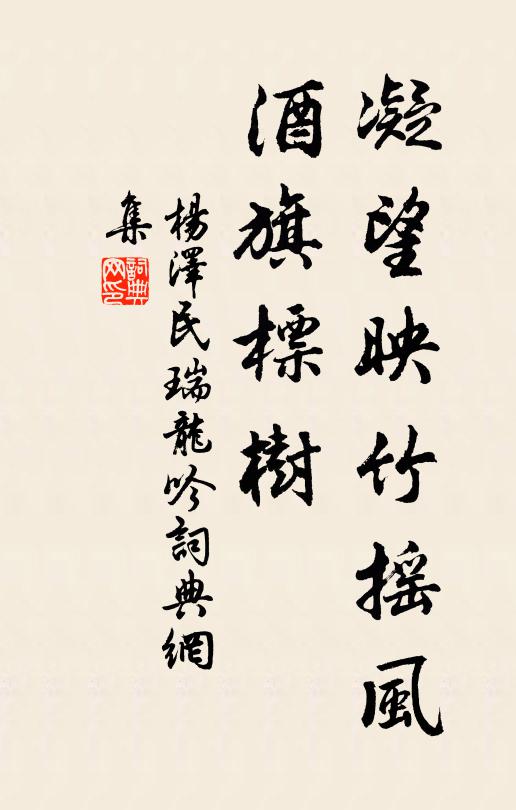 凝望映竹摇風
酒旗標樹
楊澤民瑞龍吟詞典網
集
詞典網印